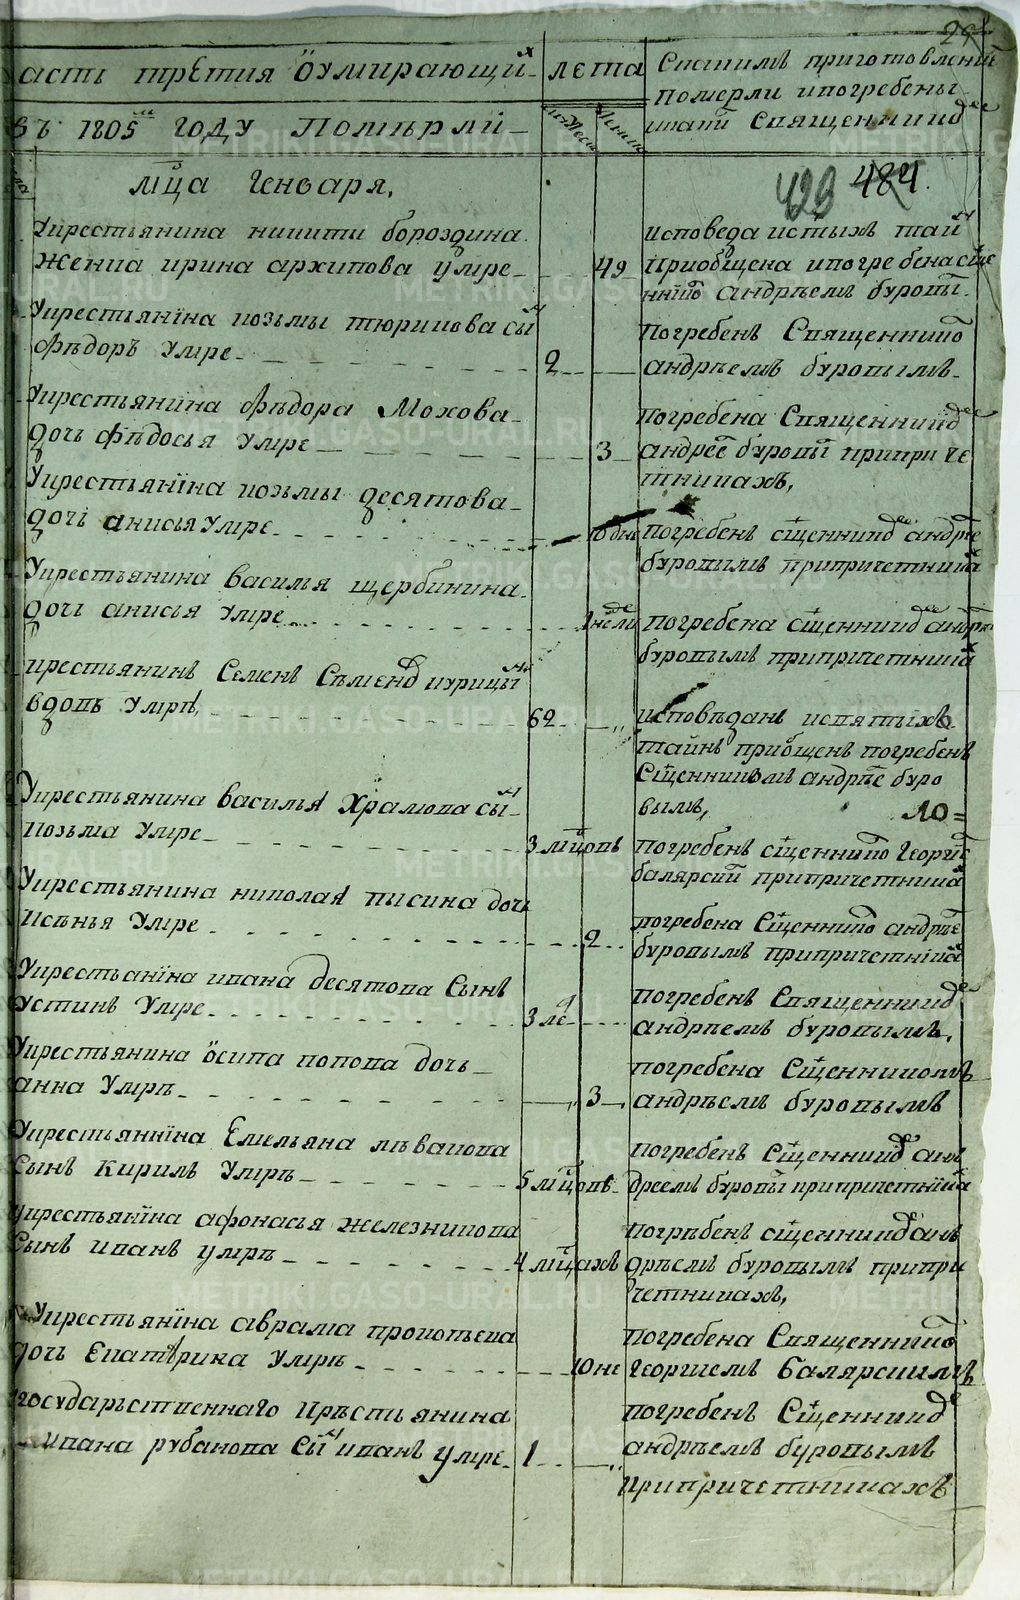 29
часть третия ѹмирающих
лета
с каким приготовлением
померли и погребены
и каким священником
въ 1805м году Померли
мужеска
женска
мца Генваря,
429 484.
У крестьянина никити бороздина
жена ирина архипова умре
49
исповеда и стыхъ таин
приобщена и погребена сще
нникомъ андрѣемъ буровым
У крестьянїна козьмы тюрикова сын
Фѣдоръ умре
2
погребенъ Священнико
андрѣемъ буровымъ
У крестьянина фѣдора Мохова
дочь фѣдосья умре
3
погребена Священником
андрее буровы при приче
тникахъ,
У крестьянїна козьмы десятова
дочь анисья умре
10 дне
погребенъ сщенником андрѣе
буровымъ при причетника
У крестьянина василья щербинина
дочь анисья умре
1 недели
погребена сщенником андрѣе
буровымъ при причетника
крестьянинъ Семенъ Сѣменов курицын
вдовъ умрѣ,
62
исповѣданъ и святыхъ
тайнъ приобщенъ погребенъ
Сщенникомъ андрѣе буро
вымъ,
У крестьянина василья Храмова сын
козьма умре
3 мцовъ
погребенъ сщеннико Георгие
балярски при причетника
У крестьянина николая писина дочь
ксѣнья умре
2
погребена Сщеннико андрѣе
буровымъ при причетника
У крестьянїна ивана десятова Сынъ
устинъ умре
3 ле
погребенъ Священником
андрѣемъ буровымъ,
У крестьянина ѡсипа попова дочь
анна умрѣ
3
погребена Сщенникомъ
андрѣемъ буровымъ
У крестьяниїна Емельяна лѣвакова
Сынъ Кирилъ умрѣ
5 мцовъ
погребенъ Сщенником ан
дреемъ буровы при причетника
У крестьянїна афонасья железникова
Сынъ иванъ умрѣ
4 мцахъ
погрѣбенъ сщенником ан
дрѣемъ буровымъ при при
четникахъ,
У крестьянїна аврама прокотьева
дочь Екатѣрика умрѣ
10 не
погребена Священнико
Георгиемъ Балярскимъ
У государьственнаго крѣстьянина
ивана рубанова Сын иванъ умре
1
погребенъ Сщенником
андрѣемъ буровымъ
при причетникахъ
METRIKI.GASO-URAL.RU